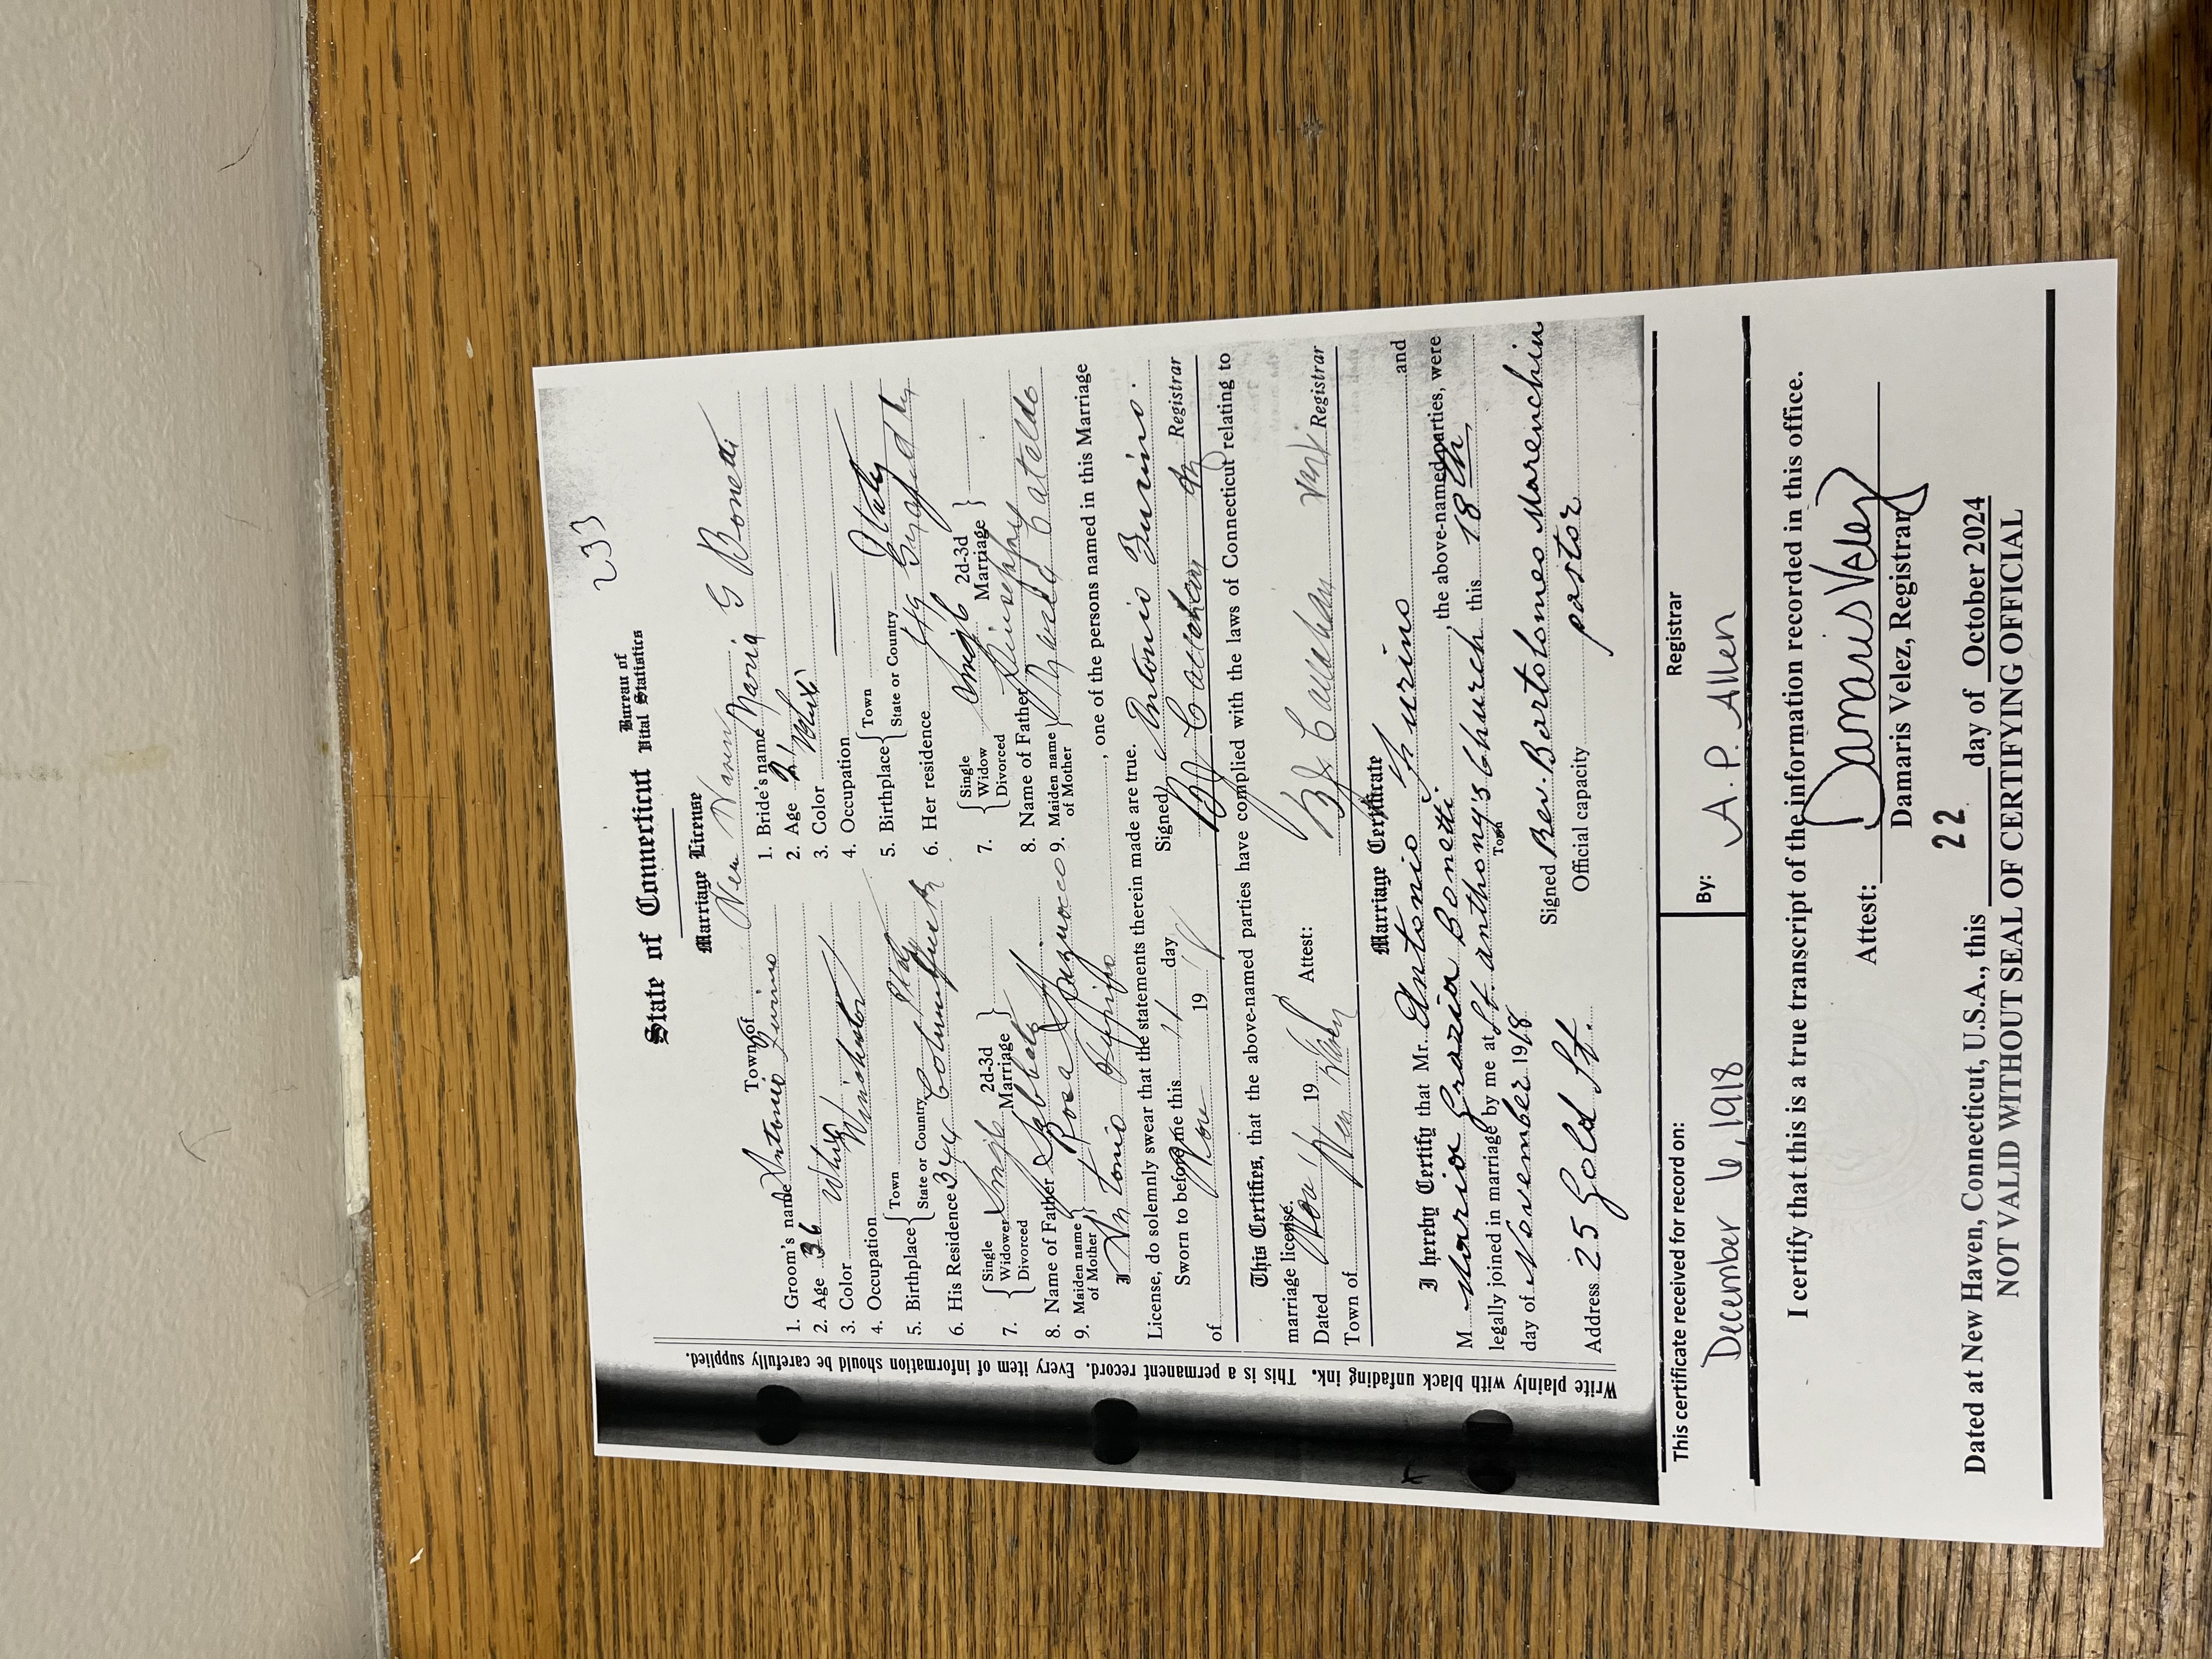 233
State of Connecticut Bureau of Vital Statistics
Marriage License
Town of New Haven
1. Groom's name Antonio Zurino
2. Age 36
3. Color White
4. Occupation
5. Birthplace { Town
State or Country Italy
6. His Residence 344 Columbus
7. { Single Widower Divorced Single 2d-3d Marriage }
8. Name of Father
9. Maiden name of Mother } Rosa
1. Bride's name Maria G Bonetti
2. Age 21
3. Color White
4. Occupation
5. Birthplace { Town
State or Country Italy
6. Her residence
7. { Single Widow Divorced Single 2d-3d Marriage }
8. Name of Father Giuseppe
9. Maiden name of Mother } Cataldo
I Antonio , one of the persons named in this Marriage
License, do solemnly swear that the statements therein made are true.
Signed Antonio Zurino.
Sworn to before me this 11 day
of Nov 19 18 Registrar
This Certifies, that the above-named parties have complied with the laws of Connecticut relating to
marriage license.
Dated Nov 19 Attest: Registrar
Town of New Haven
Marriage Certificate
I hereby Certify that Mr. Antonio Zurino and
M Maria Grazia Bonetti, the above-named parties, were
legally joined in marriage by me at St. Anthony's Church, Town this 18th
day of November 1918 Signed Rev. Bartolomeo Marenchin
Address 25 Gold St. Official capacity pastor
Write plainly with black unfading ink. This is a permanent record. Every item of information should be carefully supplied.
This certificate received for record on: Registrar
December 6, 1918 By: A. P. Allen
I certify that this is a true transcript of the information recorded in this office.
Attest: Damaris Velez
Damaris Velez, Registrar
Dated at New Haven, Connecticut, U.S.A., this 22 day of October 2024
NOT VALID WITHOUT SEAL OF CERTIFYING OFFICIAL